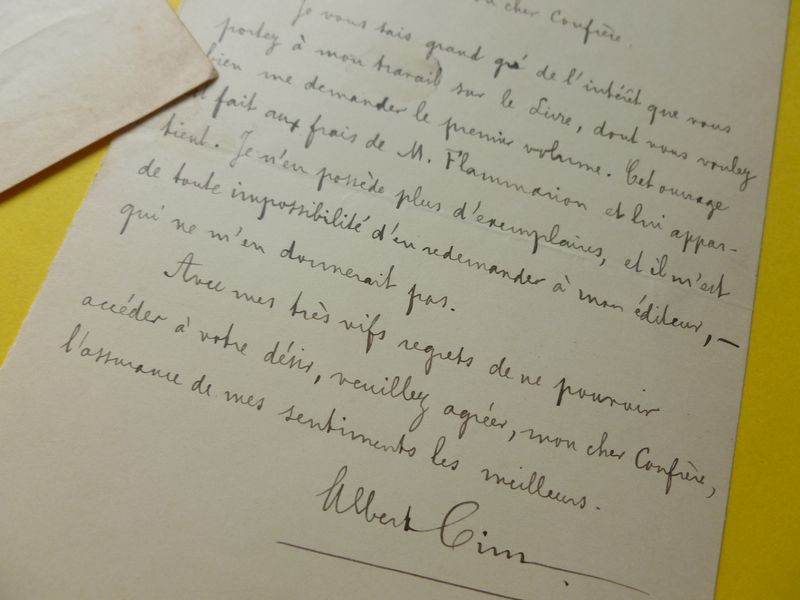 mon cher Confrère.
Je vous sais grand gré de l'intérêt que vous
portez à mon travail sur le Livre, dont vous voulez
bien me demander le premier volume. Cet ouvrage
est fait aux frais de M. Flammarion et lui appar-
tient. Je n'en possède plus d'exemplaires, et il m'est
de toute impossibilité d'en redemander à mon éditeur, —
qui ne m'en donnerait pas.
Avec mes très vifs regrets de ne pouvoir
accéder à votre désir, veuillez agréer, mon cher Confrère,
l'assurance de mes sentiments les meilleurs.
Albert Cim.